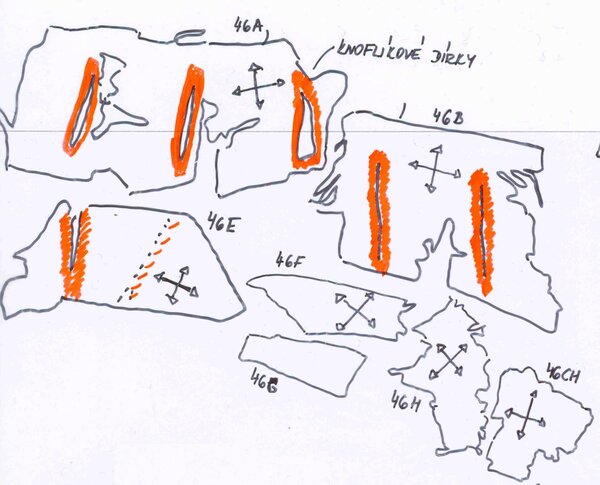 46A
KNOFLÍKOVÉ DÍRKY
46B
46E
46F
46G
46H
46CH